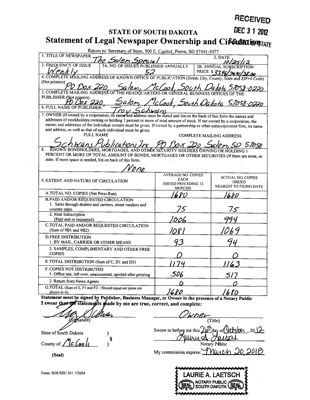 RECEIVED
DEC 31 2012
STATE OF SOUTH DAKOTA
Statement of Legal Newspaper Ownership and Circulation
Return to: Secretary of State, 500 E. Capitol, Pierre, SD 57501-5077
1. TITLE OF NEWSPAPER
The Salem Special
2. DATE
1. FREQUENCY OF ISSUE
Weekly
1A. NO. OF ISSUES PUBLISHED ANNUALLY
52
1B. ANNUAL SUBSCRIPTION
PRICE
4. COMPLETE MAILING ADDRESS OF KNOWN OFFICE OF PUBLICATION (Street, City, County, State and ZIP+4 Code)
(Not printers)
PO Box 220, Salem, McCook, South Dakota 57058-0220
5. COMPLETE MAILING ADDRESS OF THE HEADQUARTERS OR GENERAL BUSINESS OFFICES OF THE
PUBLISHER (Not printers)
PO Box 220, Salem, McCook, South Dakota 57058-0220
6. FULL NAME OF PUBLISHER:
Troy Schwans
7. OWNER (If owned by a corporation, its name and address must be stated and listed on the back of this form the names and
addresses of stockholders owning or holding 1 percent or more of total amount of stock. If not owned by a corporation, the
names and addresses of the individual owners must be given. If owned by a partnership or other unincorporated firm, its name
and address, as well as that of each individual must be given.
FULL NAME
COMPLETE MAILING ADDRESS
Schwans Publication Inc, PO Box 220, Salem, SD 57058
8. KNOWN BONDHOLDERS, MORTGAGES, AND OTHER SECURITY HOLDERS OWNING OR HOLDING 1
PERCENT OR MORE OF TOTAL AMOUNT OF BONDS, MORTGAGES OR OTHER SECURITIES (If there are none, so
state. If more space is needed, list on back of this form.
None
9. EXTENT AND NATURE OF CIRCULATION
AVERAGE NO. COPIES
EACH
ISSUED PRECEDING 12
MONTHS
ACTUAL NO. COPIES
ISSUED
NEAREST TO FILING DATE
A. TOTAL NO. COPIES (Net Press Run)
1680
1680
B. PAID AND/OR REQUESTED CIRCULATION
1. Sales through dealers and carriers, street vendors and
counter sales
75
75
2. Mail Subscription
(Paid and or requested)
1006
994
C. TOTAL PAID AND/OR REQUESTED CIRCULATION
(Sum of 9B1 and 9B2)
1081
1069
D. FREE DISTRIBUTION
1. BY MAIL, CARRIER OR OTHER MEANS
93
94
2. SAMPLES, COMPLIMENTARY AND OTHER FREE
COPIES
0
0
E. TOTAL DISTRIBUTION (Sum of C, D1 and D2)
1174
1163
F. COPIES NOT DISTRIBUTED
1. Office use, left over, unaccounted, spoiled after printing
506
517
2. Return from News Agents
0
0
G. TOTAL (Sum of E, F1 and F2 - Should equal net press run
shown in A)
1680
1680
Statement must be signed by Publisher, Business Manager, or Owner in the presence of a Notary Public
I swear that the statements made by me are true, correct, and complete:
Owner
(Signature)
(Title)
State of South Dakota )
§
County of McCook )
(Seal)
Sworn to before me this day of October, 2012
Notary Public
My commission expires: March 20, 2018
Form: SOS REC 051 7/2004
LAURIE A. LAETSCH
NOTARY PUBLIC
SOUTH DAKOTA
SEAL
SEAL